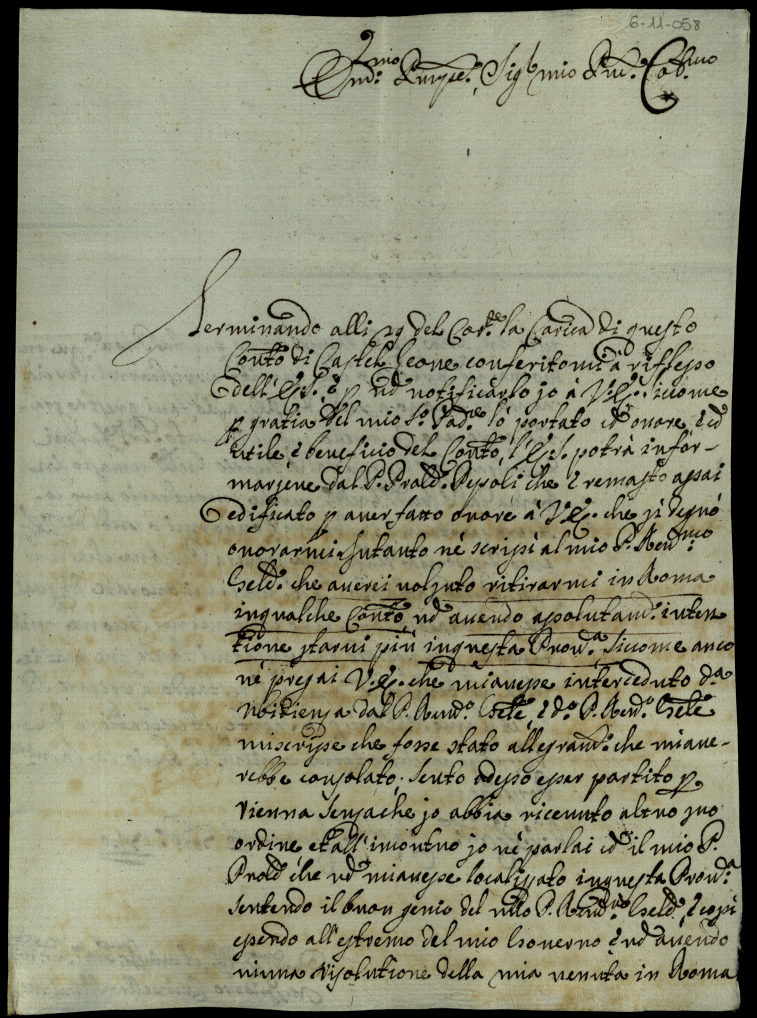 6-11-058
Sig.r mio
Terminando alli 29 del Cor.te la Carica di questo
Conto di Castel Leone conferitomi à riflesso
dell' e p nō notificarlo jo à V. siccome
p gratia del mio portato cō onore, è cō
utile è beneficio del Conto, potrà infor-
marsene dal P. Prāle Pepoli che è remasto assai
edificato p aver fatto onore à V. che si degnò
onorarmi. Intanto nè scrissi al mio P. Rev.mo
che averei voluto ritirarmi in Roma
in qualche Conto, nō avendo assolutam.te inten
tione starvi più in questa Prov.a Siccome anco
nè pregai V. che mi avesse interceduto d.a
dal P. Rev.mo è d.o P. Rev.mo
mi scrisse che fosse stato allegram.te che mi ave-
rebbe consolato. Sento adesso esser partito p
Vienna senza che jo abbia ricevuto altro suo
ordine, et all' incontro jo nè parlai cō il mio P.
che nō mi avesse localizzato in questa Prov.a
sentendo il buon genio del P. Rev.mo è così
essendo all' estremo del mio Governo è nō avendo
niuna risolutione della mia venuta in Roma